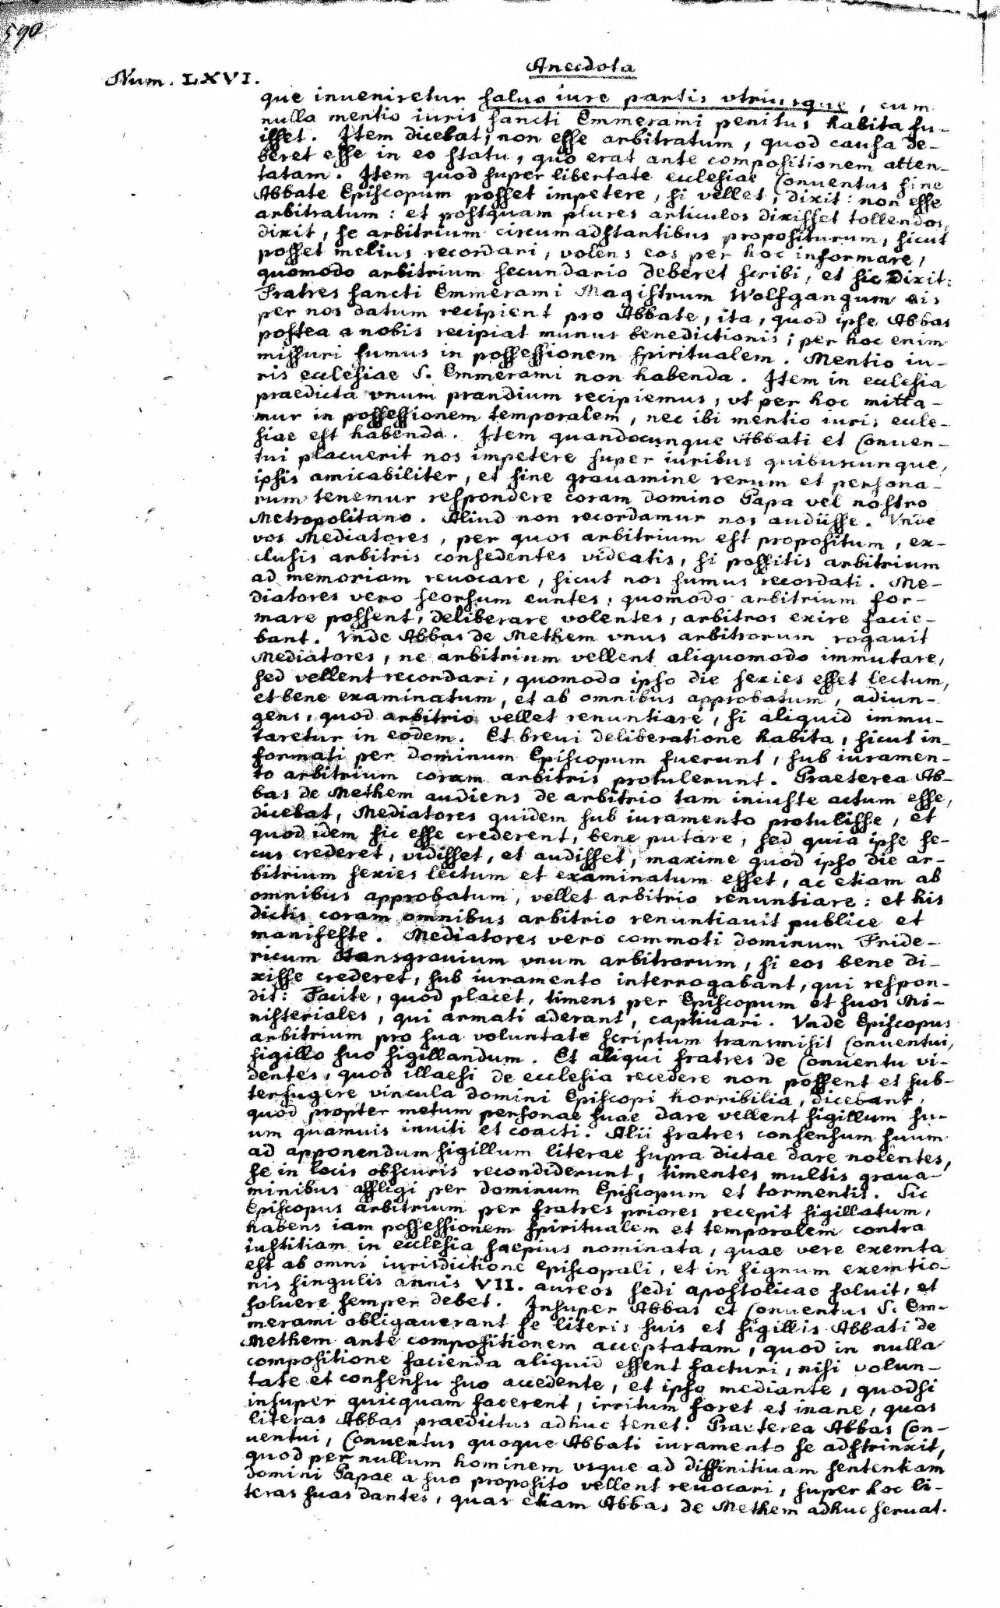 590
Anecdota
Num. LXVI.
que inveniretur salvo iure partis utriusque, cum
nulla mentio iuris sancti Emmerami penitus habita fu-
isset. Item dicebat, non esse arbitratum, quod causa de-
beret esse in eo statu, quo erat ante compositionem atten-
tatam. Item quod super libertate ecclesiae Conventus sine
Abbate Episcopum posset impetere, si vellet, dixit: non esse
arbitratum: et postquam plures articulos dixisset tollendos,
dixit, se arbitrium circumadstantibus propositurum, sicut
posset melius recordari, volens eos per hoc informare,
quomodo arbitrium secundario deberet scribi, et sic dixit:
Fratres sancti Emmerami Magistrum Wolfgangum eis
per nos datum recipient pro Abbate, ita, quod ipse Abbas
postea a nobis recipiat munus benedictionis; per hoc enim
missuri sumus in possessionem spiritualem. Mentio iu-
ris ecclesiae S. Emmerami non habenda. Item in ecclesia
praedicta unum prandium recipiemus, ut per hoc mitta-
mur in possessionem temporalem, nec ibi mentio iuris eccle-
siae est habenda. Item quandocunque Abbati et Conven-
tui placuerit nos impetere super iuribus quibuscunque,
ipsis amicabiliter, et sine gravamine rerum et persona-
rum tenemur respondere coram domino Papa vel nostro
Metropolitano. Aliud non recordamur nos audiisse. Vnde
vos Mediatores, per quos arbitrium est propositum, ex-
clusis arbitris consedentes videatis, si possitis arbitrium
ad memoriam revocare, sicut nos sumus recordati. Me-
diatores vero seorsum euntes, quomodo arbitrium for-
mare possent, deliberare volentes, arbitros exire facie-
bant. Vnde Abbas de Methem vnus arbitrorum rogavit
Mediatores, ne arbitrium vellent aliquomodo immutare,
sed vellent recordari, quomodo ipso die sexies esset lectum,
et bene examinatum, et ab omnibus approbatum, adiun-
gens, quod arbitrio vellet renuntiare, si aliquid immu-
taretur in eodem. Et brevi deliberatione habita, sicut in-
formati per dominum Episcopum fuerunt, sub iuramen-
to arbitrium coram arbitris protulerunt. Praeterea Ab-
bas de Methem audiens de arbitrio tam iniuste actum esse,
dicebat, Mediatores quidem sub iuramento protulisse, et
quod idem sic esse crederent, bene putare, sed quia ipse se-
cus crederet, vidisset, et audisset, maxime quod ipso die ar-
bitrium sexies lectum et examinatum esset, ac etiam ab
omnibus approbatum, vellet arbitrio renuntiare: et his
dictis coram omnibus arbitrio renuntiavit publice et
manifeste. Mediatores vero commoti dominum Fride-
ricum Hansgravium unum arbitrorum, si eos bene di-
xisse crederet, sub iuramento interrogabant, qui respon-
dit: Facite, quod placet, timens per Episcopum et suos Mi-
nisteriales, qui armati aderant, captivari. Vnde Episcopus
arbitrium pro sua voluntate scriptum transmisit Conventui,
sigillo suo sigillandum. Et aliqui fratres de Conventu vi-
dentes, quod illaesi de ecclesia recedere non possent et sub-
terfugere vincula domini Episcopi horribilia, dicebant,
quod propter metum personae suae dare vellent sigillum su-
um quamvis inviti et coacti. Alii fratres consensum suum
ad apponendum sigillum literae supra dictae dare nolentes,
se in locis obscuris recondiderunt, timentes multis grava-
minibus affligi per dominum Episcopum et tormentis. Sic
Episcopus arbitrium per fratres priores recepit sigillatum,
habens iam possessionem spiritualem et temporalem contra
iustitiam in ecclesia saepius nominata, quae vere exemta
est ab omni iurisdictione episcopali, et in signum exemtio-
nis singulis annis VII. aureos sedi apostolicae solvit, et
solvere semper debet. Insuper Abbas et Conventus S. Em-
merami obligaverant se literis suis et sigillis Abbati de
Methem ante compositionem acceptatam, quod in nulla
compositione facienda aliquid essent facturi, nisi volun-
tate et consensu suo accedente, et ipso mediante, quodsi
insuper quicquam facerent, irritum foret et inane, quas
literas Abbas praedictus adhuc tenet. Praeterea Abbas Con-
ventui, Conventus quoque Abbati iuramento se adstrinxit,
quod per nullum hominem usque ad diffinitivam sententiam
domini Papae a suo proposito vellent revocari, super hoc li-
teras suas dantes, quas etiam Abbas de Methem adhuc servat.